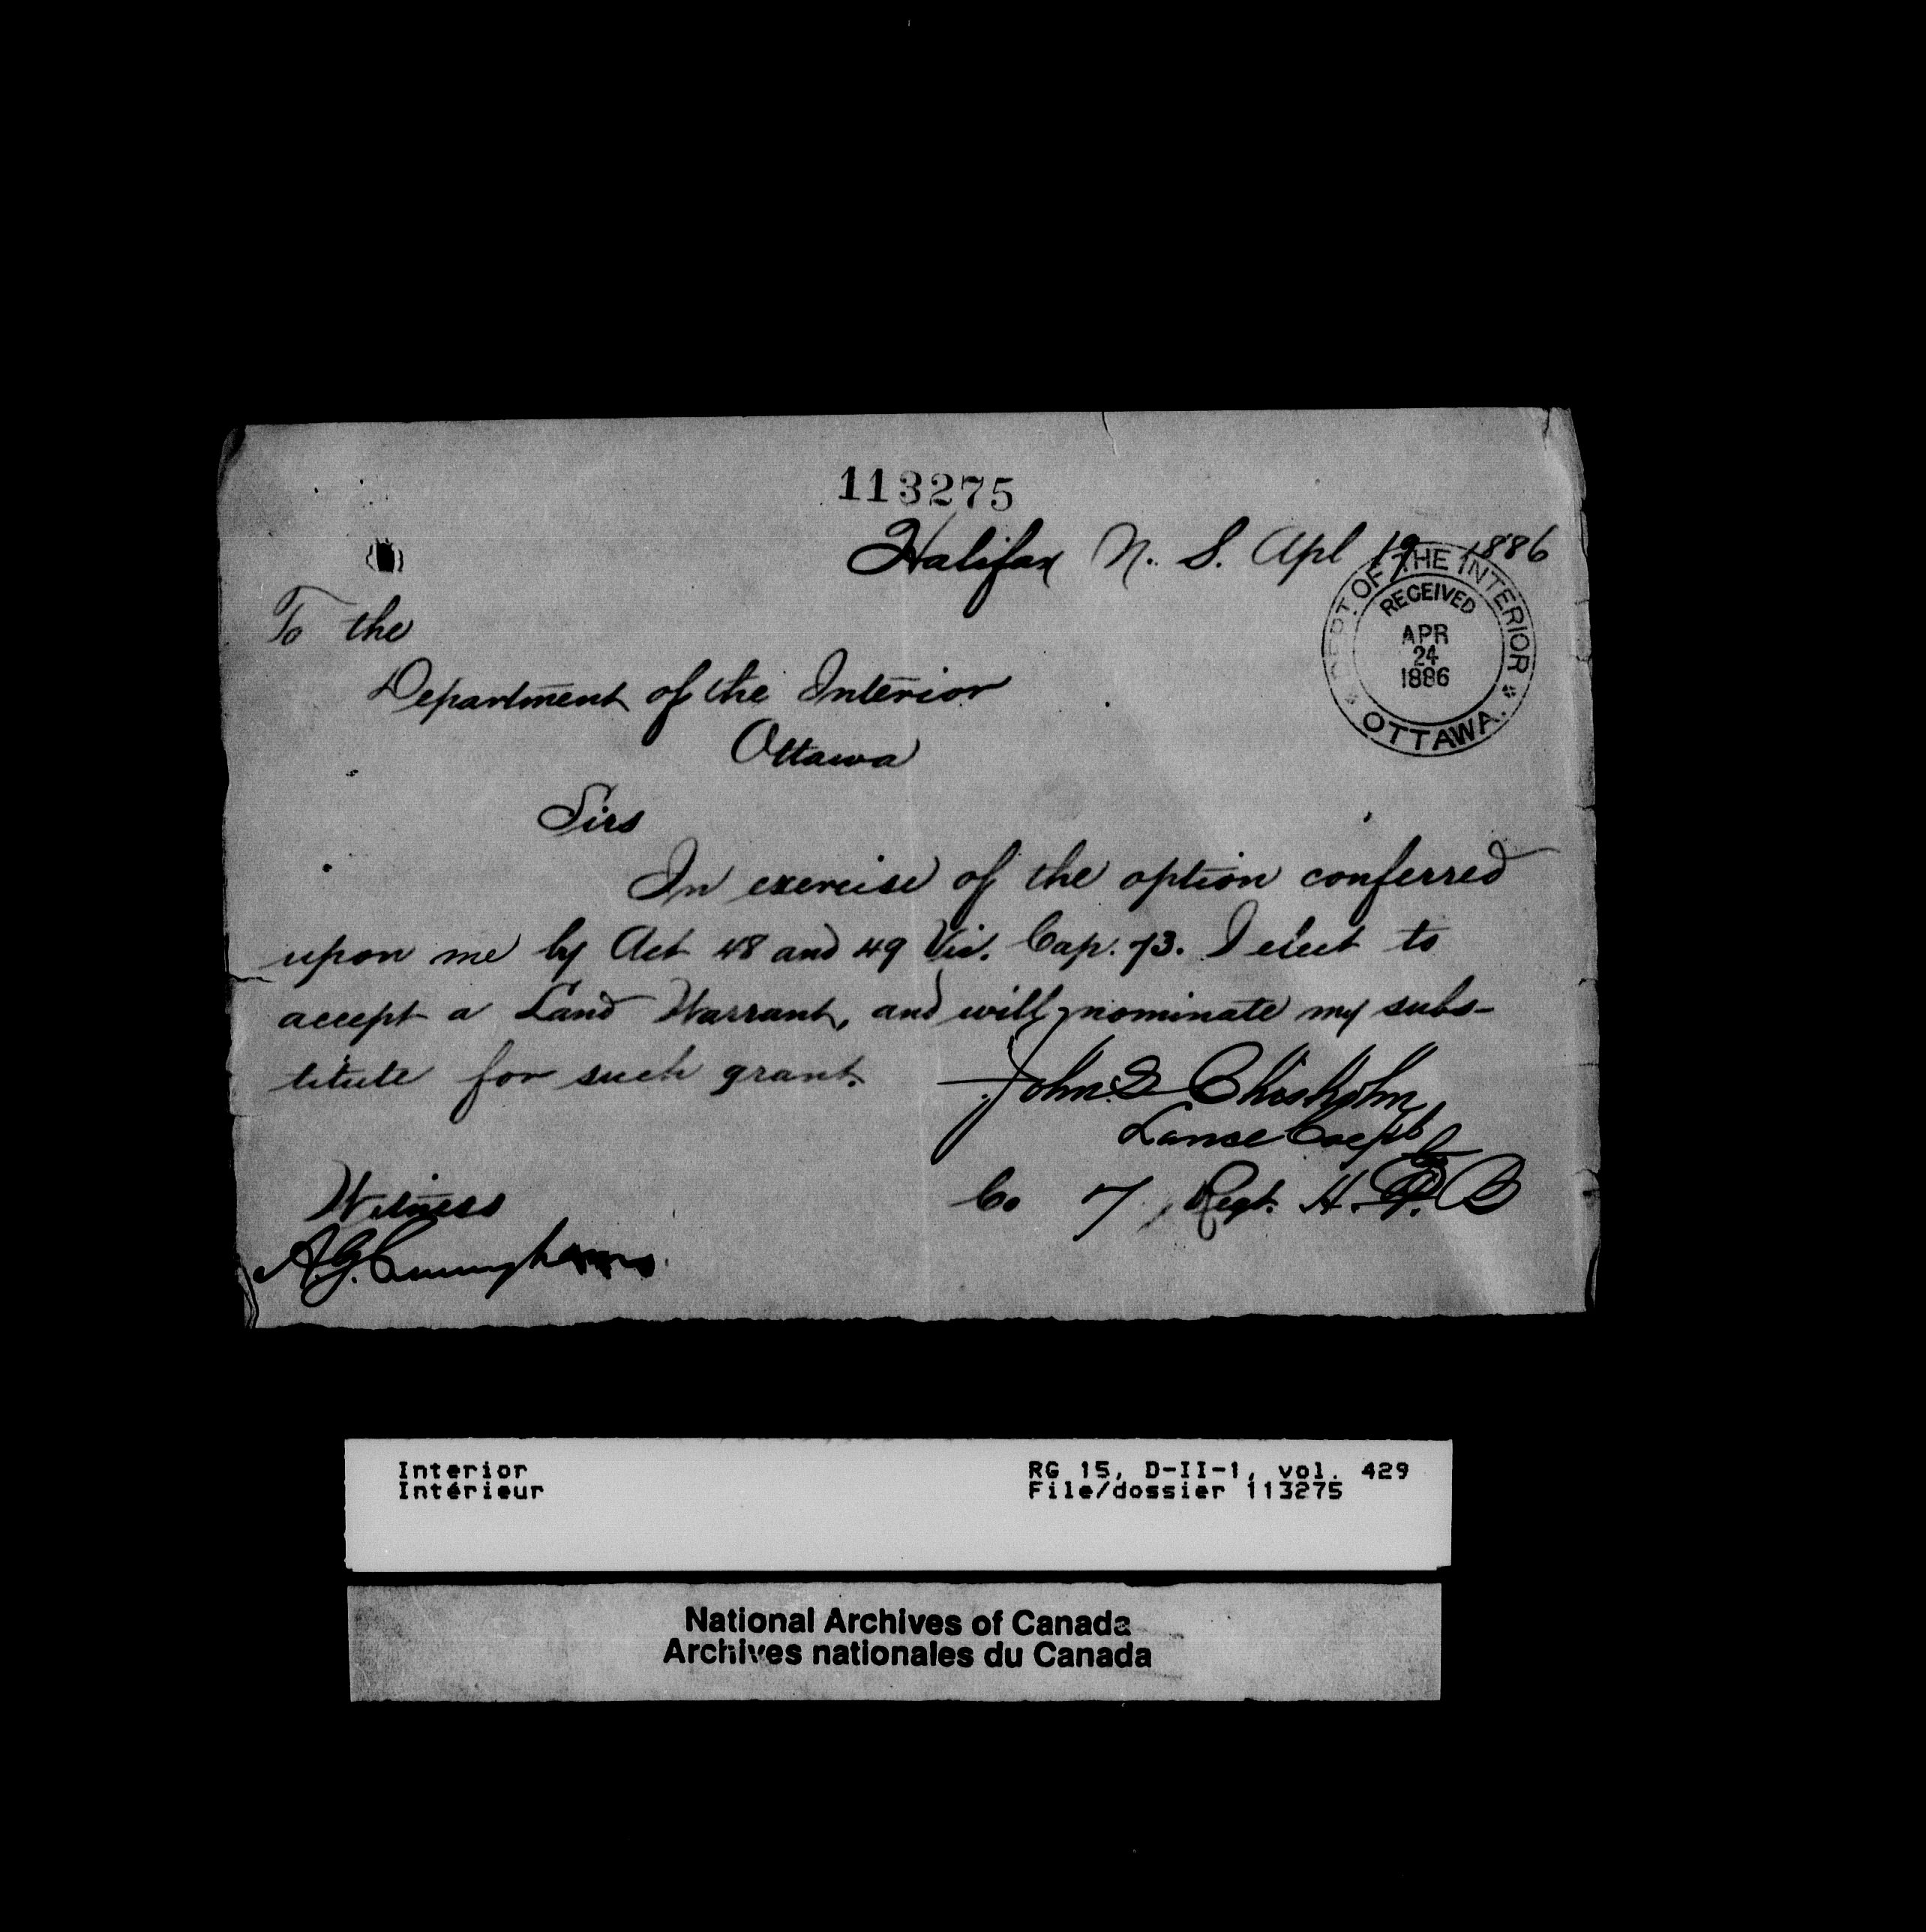 113275
Halifax N. S. Apl 19 1886
DEPT. OF THE INTERIOR
RECEIVED
APR
24
1886
OTTAWA.
To the
Department of the Interior
Ottawa
Sirs
In exercise of the option conferred
upon me by Act 48 and 49 Vic. Cap. 73. I elect to
accept a Land Warrant, and will nominate my subs-
titute for such grant.
John S Chisholm
Lance Corpl
Co 7, Regt. H. P. B
Witness
A. G. Cunningham
Interior
Intérieur
RG 15, D-II-1, vol. 429
File/dossier 113275
National Archives of Canada
Archives nationales du Canada